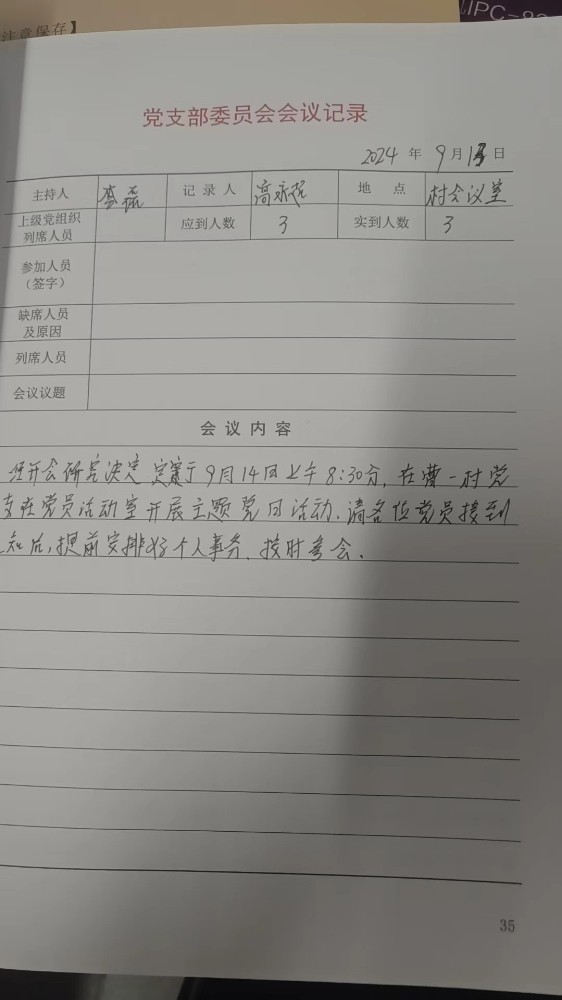 注意保存】
党支部委员会会议记录
2024 年 9 月 13 日
主持人 李 记录人 高永 地点 村会议室
上级党组织列席人员 应到人数 3 实到人数 3
参加人员
（签字）
缺席人员
及原因
列席人员
会议议题
会议内容
经开会研究决定 定于9月14日上午8:30分，在曹一村党
支在党员活动室开展主题党日活动，请各位党员接到
知后，提前安排好个人事务、按时参会.
35